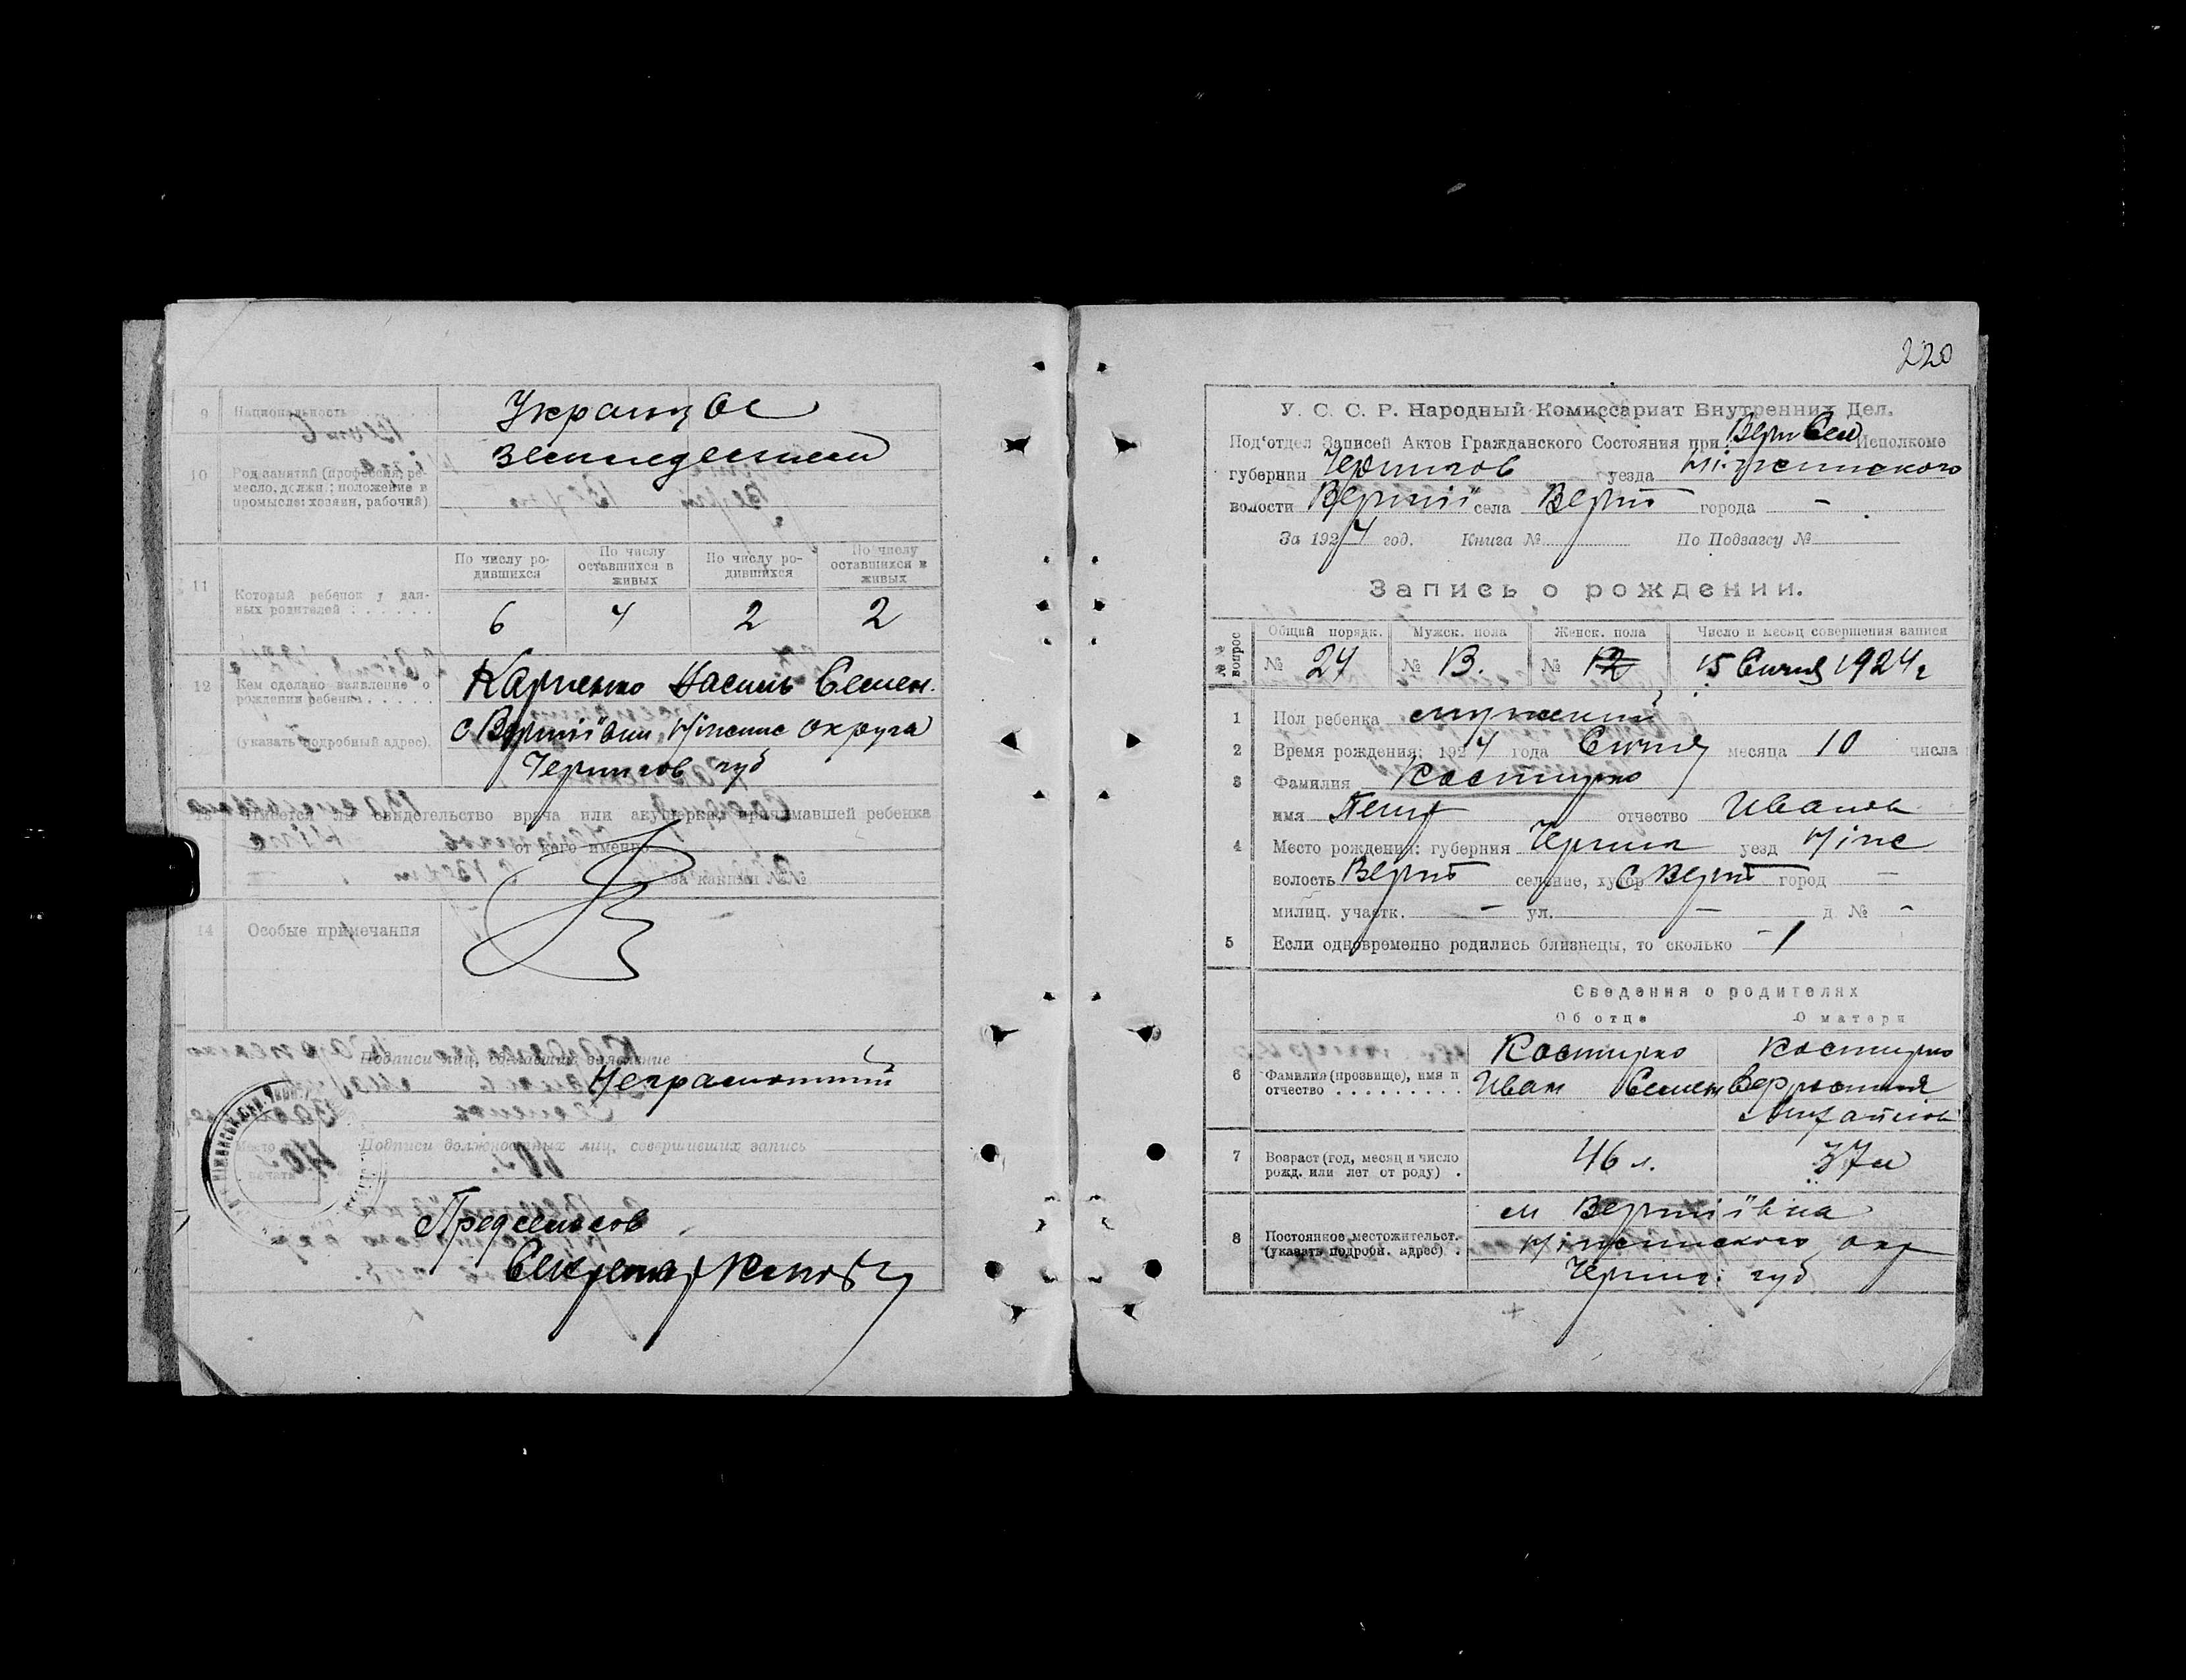 9 Национальность
Украинцы
10 Род занятий (профессия, ре-
месло, должн.; положение в
промысле: хозяин, рабочий)
По числу ро-
дившихся
По числу
оставшихся в
живых
По числу ро-
дившихся
По числу
оставшихся в
живых
11 Который ребенок у дан-
ных родителей : . . . . . .
6 4 2 2
12 Кем сделано заявление о
рождении ребенка . . . . .
(указать подробный адрес).
Карпенко Василь Семен.
с Вертіївки Ніженс округа
Чернигов губ
13 Имеется ли свидетельство врача или акушерки, принимавшей ребенка
от кого именно
за каким №
14 Особые примечания
Подписи лиц, сделавших заявление
Неграмотний
Подписи должностных лиц, совершивших запись
Место
печати
Предсельсов
Секретар
220
У. С. С. Р. Народный Комиссариат Внутренних Дел.
Под'отдел Записей Актов Гражданского Состояния при Верт Сел Исполкоме
губернии Чернигов уезда Ніженського
волости Вертії села Верт города –
За 1924 год. Книга № По Подзагсу №
Запись о рождении.
№№ вопрос
Общий порядк. Мужск. пола Женск. пола Число и месяц совершения записи
№ 24 № 13. № 12 15 Січня 1924 г
1 Пол ребенка мужений
2 Время рождения: 1924 года Січня месяца 10 числа
3 Фамилия Костирко
имя Петр отчество Иванов
4 Место рождения: губерния Черниг уезд Ніже
волость Верт селение, хутор с Верт город –
милиц. участк. – ул. – д № –
5 Если одновременно родились близнецы, то сколько – 1
Сведения о родителях
Об отце О матери
6 Фамилия (прозвище), имя и
отчество . . . . . . . . .
Костирко Костирко
Иван Семен
Михайлов
7 Возраст (год, месяц и число
рожд. или лет от роду) .
46 л. 37 л
8 Постоянное местожительст.
(указать подробн. адрес) .
м Вертіївка
Ніженського окр
Черниг. губ